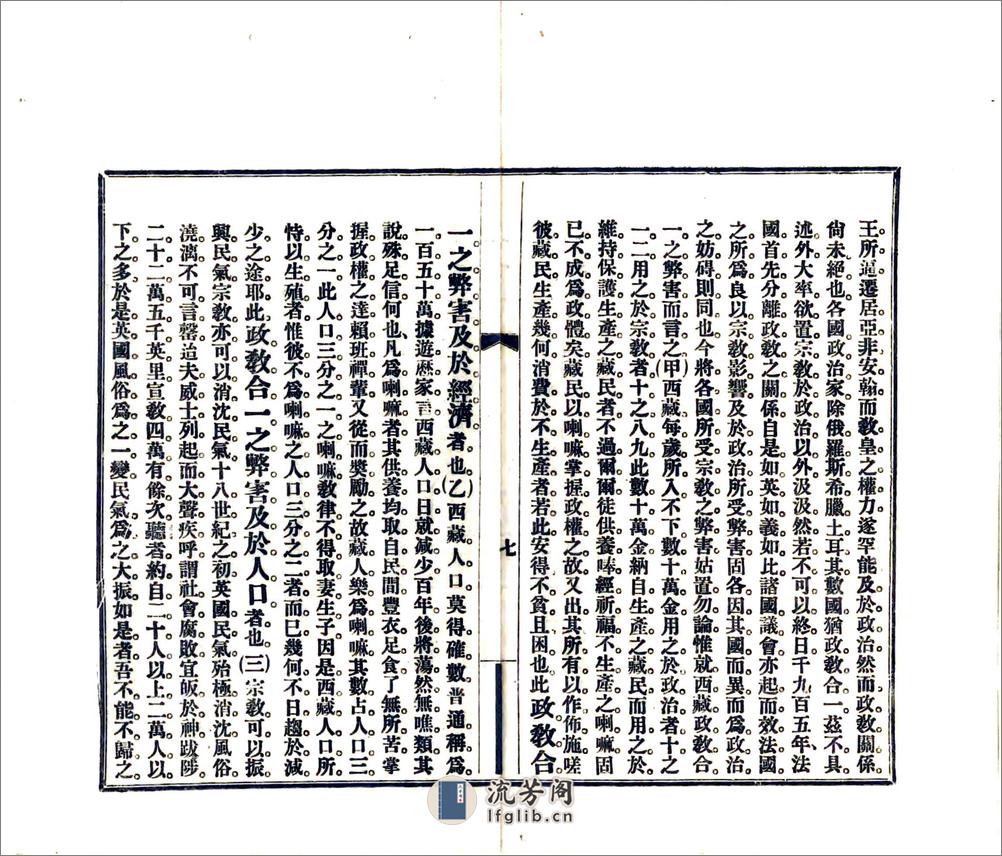 王所逼遷居亞非安翰而敎皇之權力遂罕能及於政治然而政敎關係
尙未絕也各國政治家除俄羅斯希臘土耳其數國猶政敎合一茲不具
述外大率欲置宗敎於政治以外汲汲然若不可以終日千九百五年法
國首先分離政敎之關係自是如英如義如比諸國議會亦起而效法國
之所爲良以宗敎影響及於政治所受弊害固各因其國而異而爲政治
之妨碍則同也今將各國所受宗敎之弊害姑置勿論惟就西藏政敎合
一之弊害而言之(甲)西藏每歲所入不下數十萬金用之於政治者十之
一二用之於宗敎者十之八九此數十萬金納自生產之藏民而用之於
維持保護生產之藏民者不過爾爾徒供養唪經祈福不生產之喇嘛固
已不成爲政體矣藏民以喇嘛掌握政權之故又出其所有以作佈施嗟
彼藏民生產幾何消費於不生產者若此安得不貧且困也此政敎合
七
一之弊害及於經濟者也(乙)西藏人口莫得確數普通稱爲
一百五十萬據遊歷家言西藏人口日就减少百年後將蕩然無噍類其
說殊足信何也凡爲喇嘛者其供養均取自民間豐衣足食了無所苦掌
握政權之達賴班禪輩又從而奬勵之故藏人樂爲喇嘛其數占人口三
分之一此人口三分之一之喇嘛敎律不得取妻生子因是西藏人口所
恃以生殖者惟彼不爲喇嘛之人口三分之二者而已幾何不日趨於減
少之途耶此政敎合一之弊害及於人口者也(三)宗敎可以振
興民氣宗敎亦可以消沈民氣十八世紀之初英國民氣殆極消沈風俗
澆漓不可言罄迨夫威士列起而大聲疾呼謂社會腐敗宜皈於神跋陟
二十二萬五千英里宣敎四萬有餘次聽者約自二十人以上二萬人以
下之多於是英國風俗爲之一變民氣爲之大振如是者吾不能不歸之
流芳阁
lfglib.cn